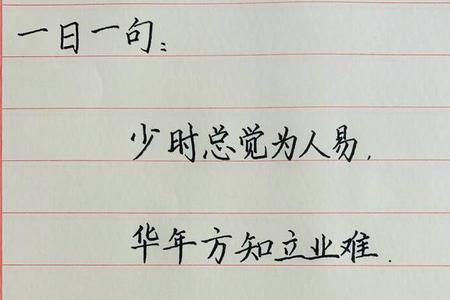 一日一句：
少时总觉为人易，
华年方知立业难．